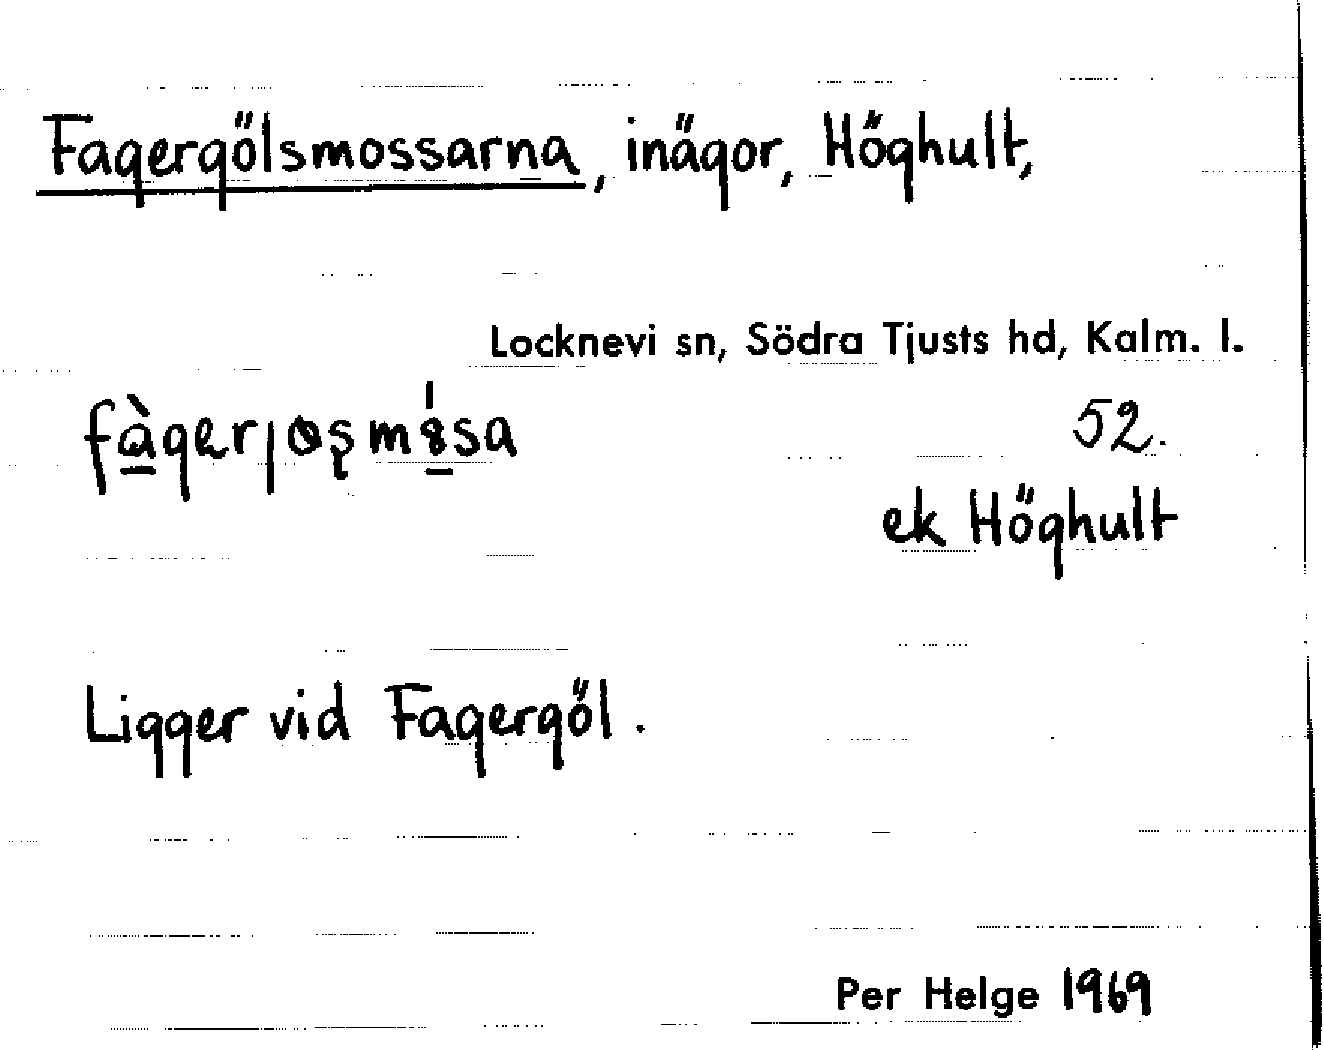 Fagergölsmossarna, inägor, Höghult,
Locknevi sn, Södra Tjusts hd, Kalm. l.
52.
ek Höghult
Ligger vid Fagergöl.
Per Helge 1969